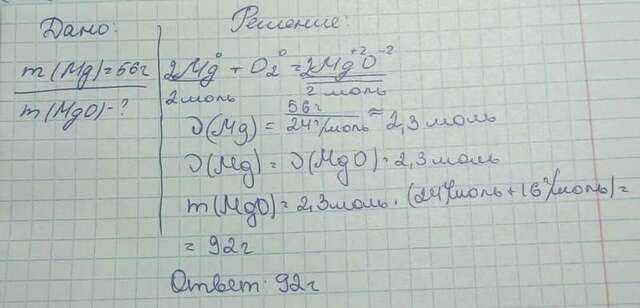 Дано:
m(Mg)=56г
m(MgO)-?
Решение:
2Mg⁰ + O₂⁰ = 2Mg⁺²O⁻²
2моль 2 моль
ν(Mg) = 56г / 24г/моль ≈ 2,3 моль
ν(Mg) = ν(MgO) = 2,3моль
m(MgO) = 2,3моль · (24г/моль + 16г/моль) =
= 92г
Ответ: 92г